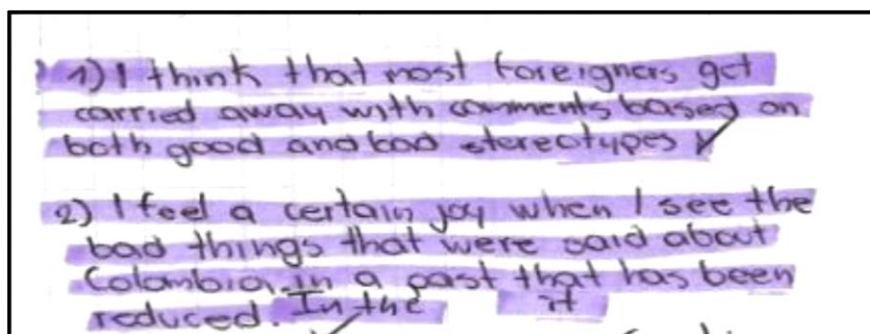 1) I think that most foreigners get
carried away with comments based on
both good and bad stereotypes
2) I feel a certain joy when I see the
bad things that were said about
Colombia in a past that has been
reduced. In the it